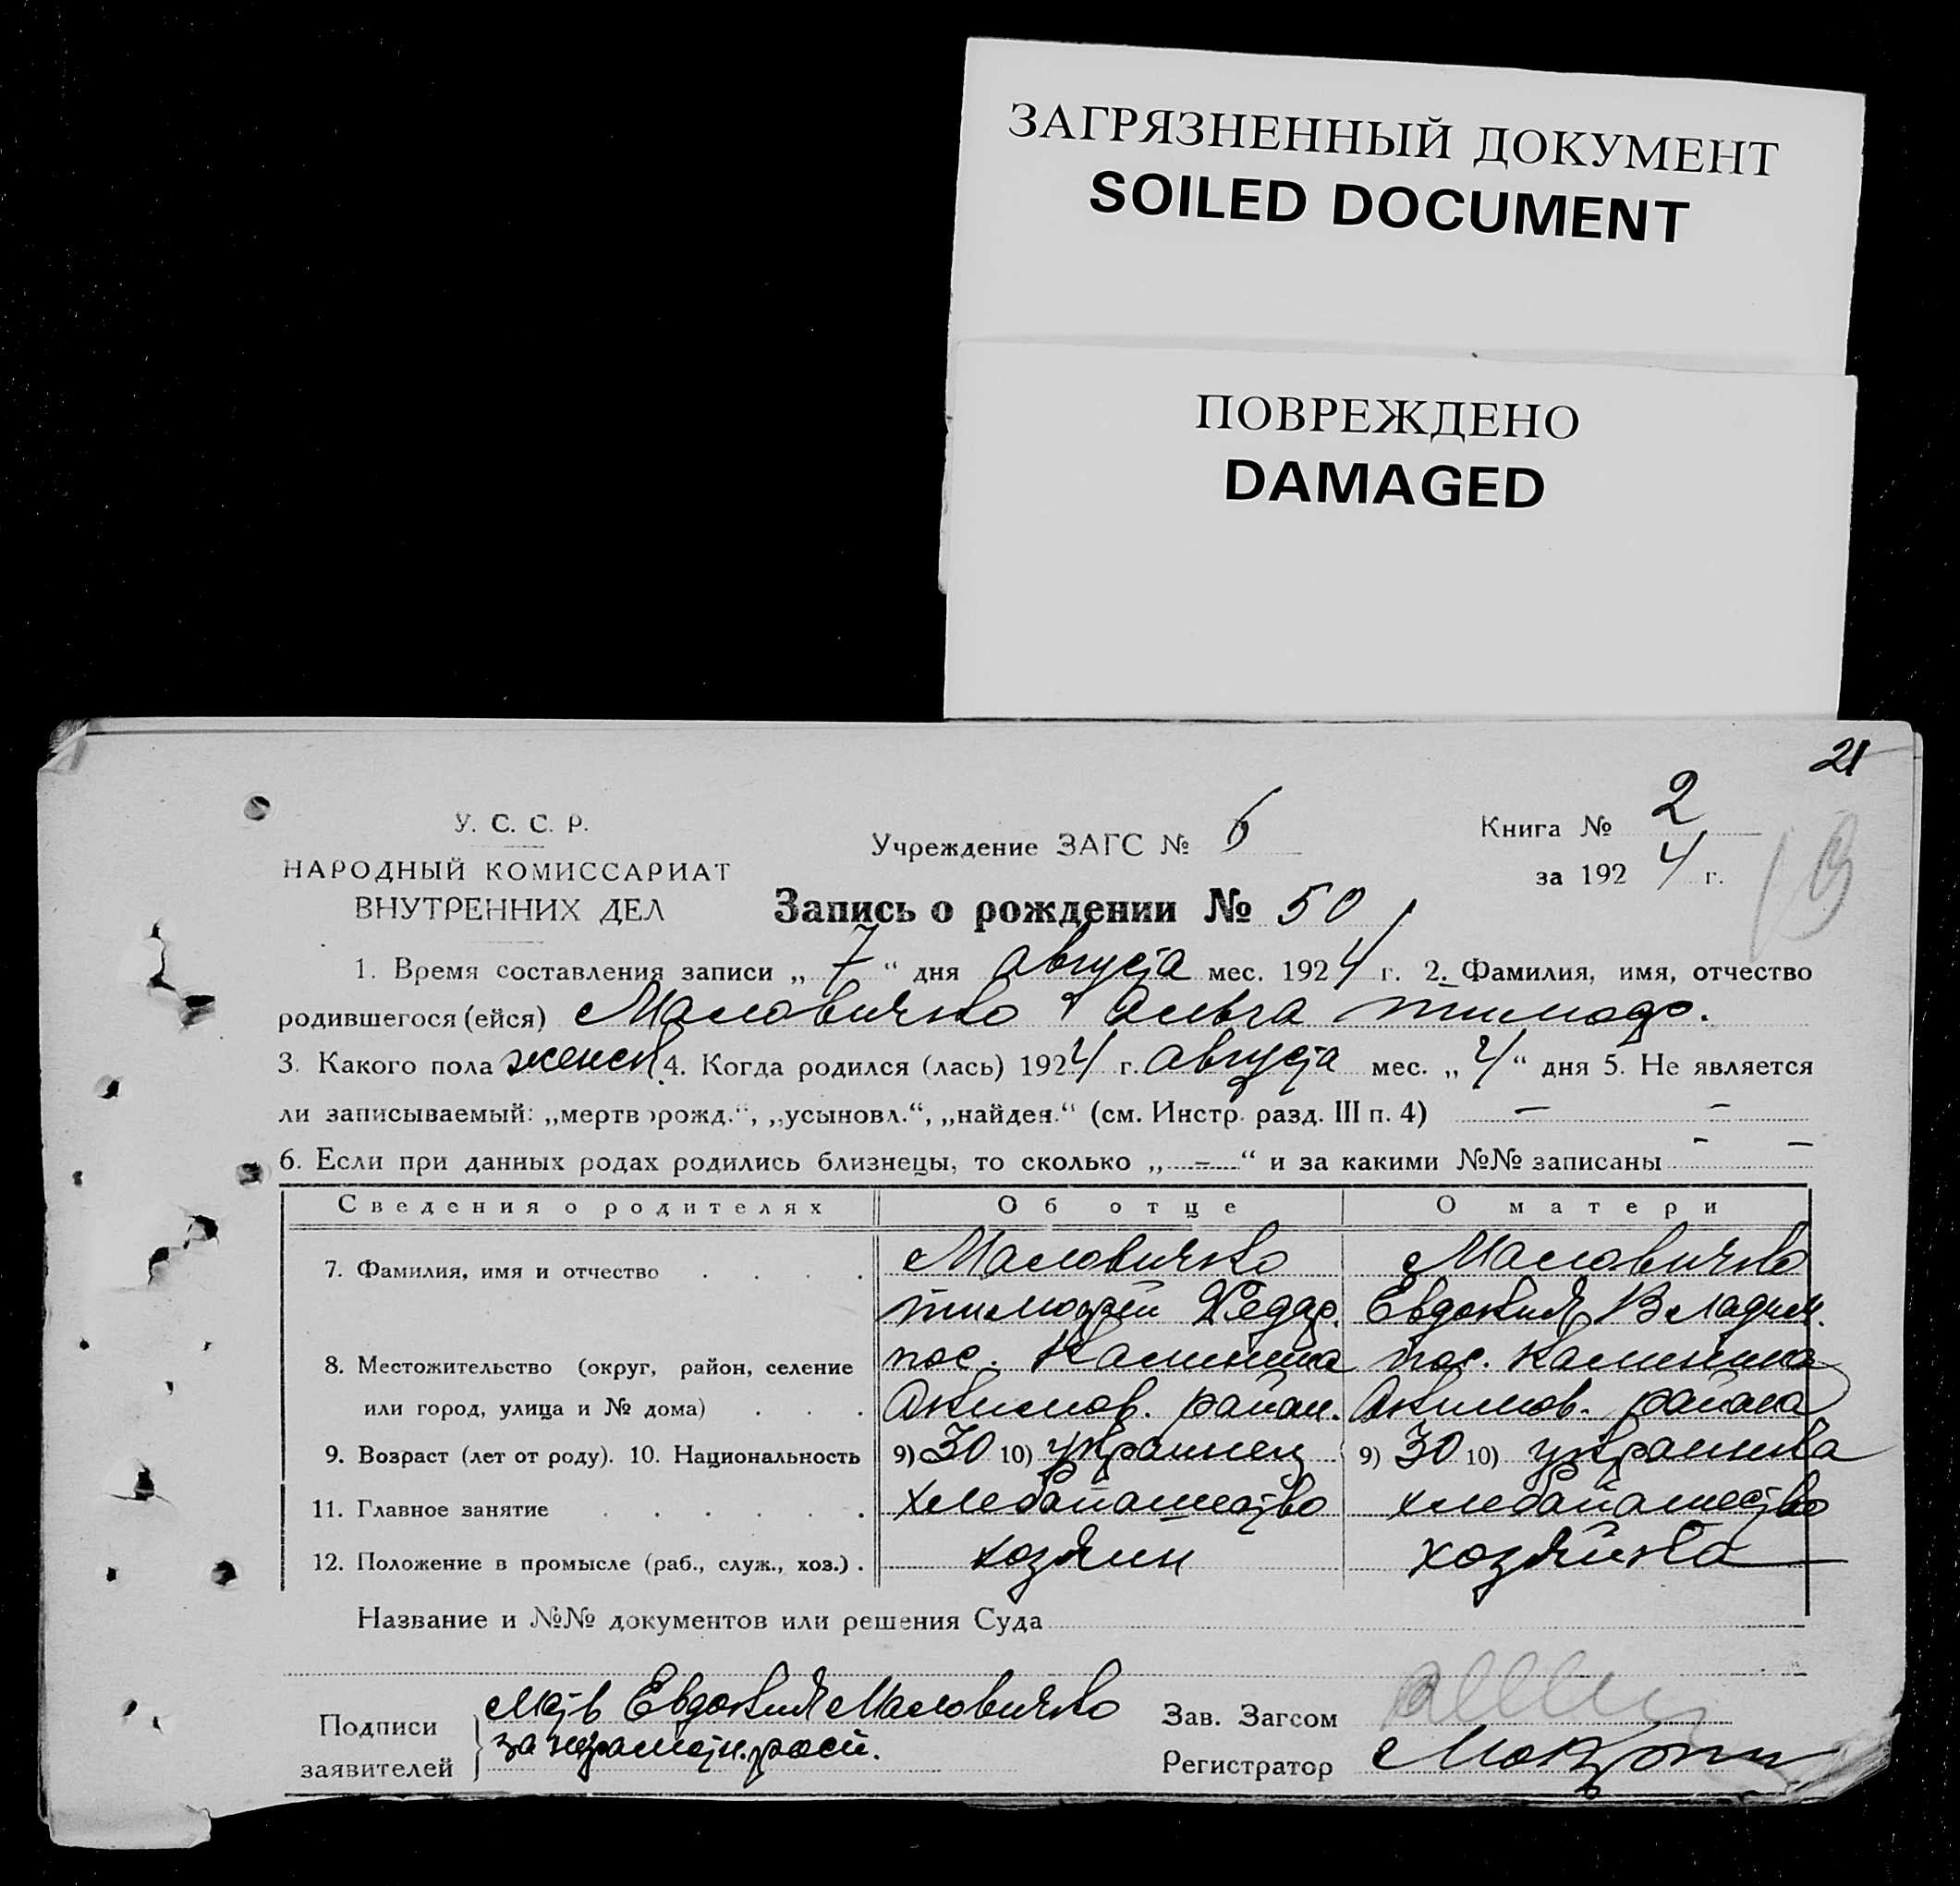 ЗАГРЯЗНЕННЫЙ ДОКУМЕНТ
SOILED DOCUMENT
ПОВРЕЖДЕНО
DAMAGED
21
У. С. С. Р.
НАРОДНЫЙ КОМИССАРИАТ
ВНУТРЕННИХ ДЕЛ
Учреждение ЗАГС № 6
Книга № 2
за 1924 г.
Запись о рождении № 50
1. Время составления записи „ 7 “ дня августа мес. 1924 г. 2. Фамилия, имя, отчество
родившегося (ейся) Маловичко Ольга Тимоф.
3. Какого пола женск. 4. Когда родился (лась) 1924 г. августа мес. „ 4 “ дня 5. Не является
ли записываемый: „мертворожд.“, „усыновл.“, „найден.“ (см. Инстр. разд. III п. 4) — —
6. Если при данных родах родились близнецы, то сколько „ — “ и за какими №№ записаны — —
Сведения о родителях Об отце О матери
7. Фамилия, имя и отчество . . . . Маловичко Маловичко
Тимофей Федор. Евдокия Владим.
8. Местожительство (округ, район, селение пос. Калинина пос. Калинина
или город, улица и № дома) . . . Акимов. район. Акимов. района
9. Возраст (лет от роду). 10. Национальность 9) 30 10) украинец 9) 30 10) украинка
11. Главное занятие . . . . . . хлебопашество хлебопашество
12. Положение в промысле (раб., служ., хоз.) . хозяин хозяйка
Название и №№ документов или решения Суда
Подписи заявителей } Мать Евдокия Маловичко
за неграмотн. росп.
Зав. Загсом
Регистратор